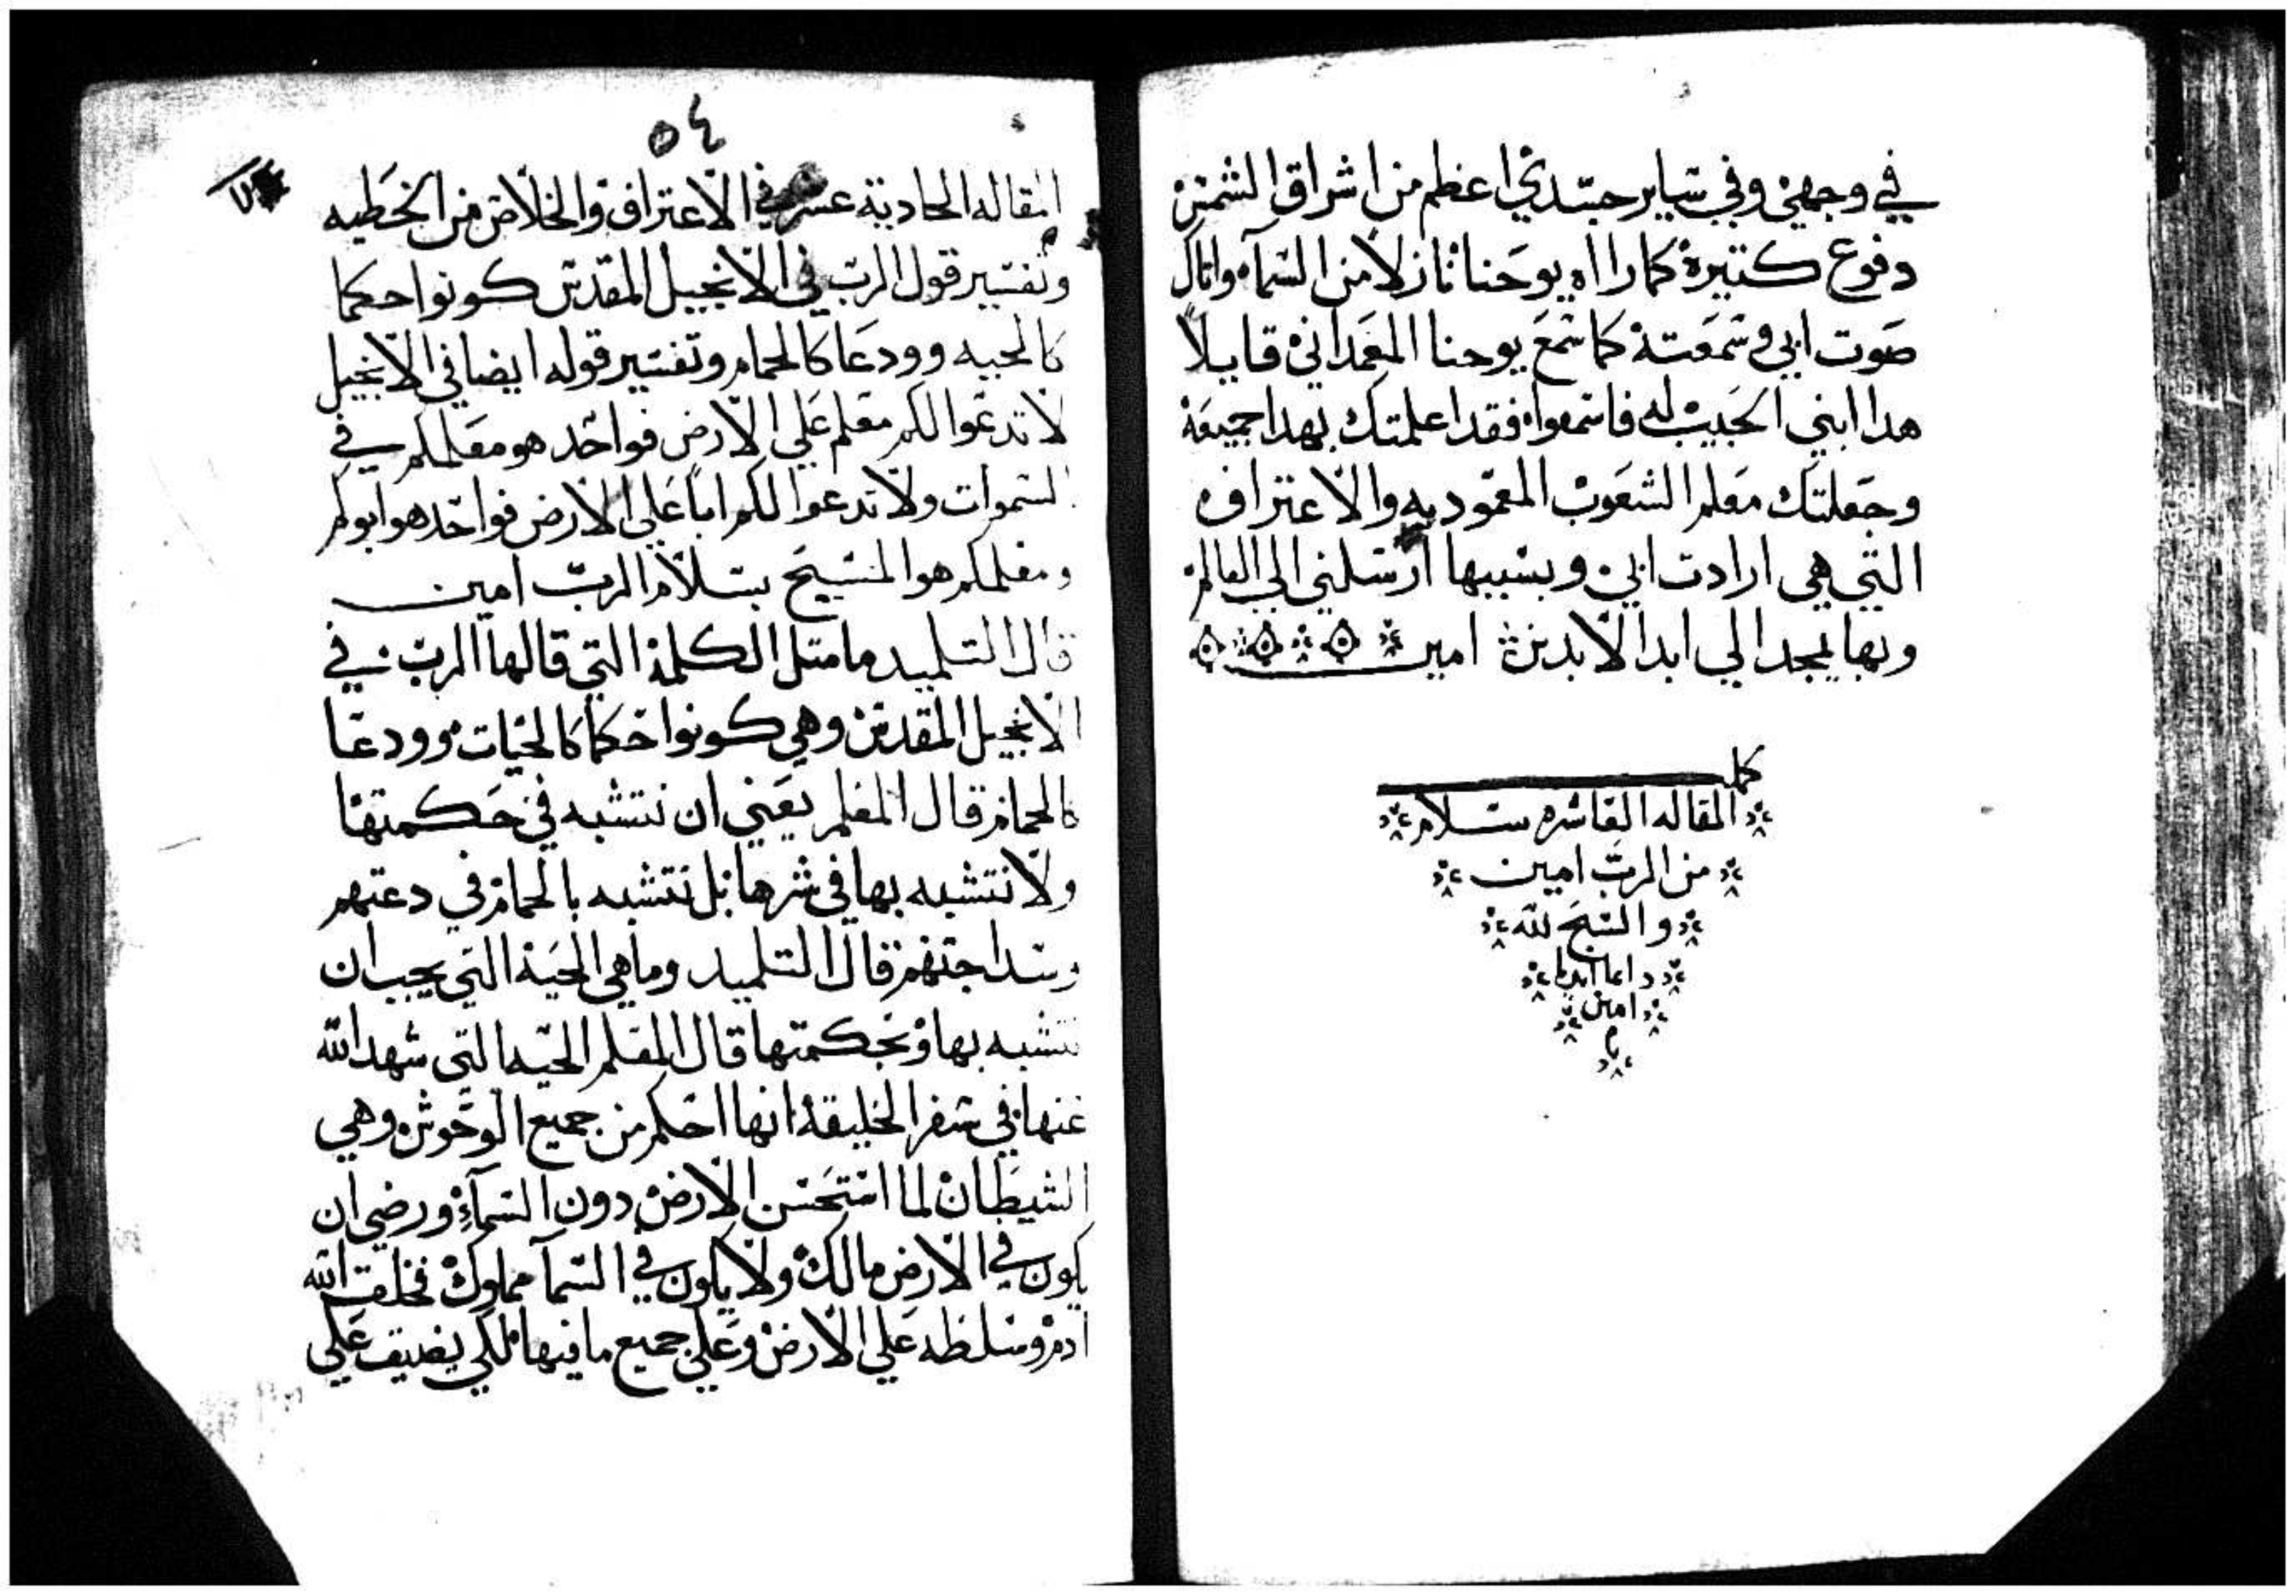 في وجهي وفي ساير جسدي اعظم من اشراق الشمس
دفوع كتيرة كما راه يوحنا نازلا من السماء واتاك
صوت ابي وسمعته كما سمع يوحنا المعمداني قايلا
هدا ابني الحبيب له فاسمعوا فقد اعلمتك بهدا جميعة
وجعلتك معلم الشعوب المعموديه والاعتراف
التي هي ارادت ابي وبسببها ارسلني الي العالم
وبها يمجد الي ابد الابدين امين
كمل
المقاله العاشره بسلام
من الرب امين
والسبح لله
دايما ابديا
امين
م
٥٤
المقاله الحادية عشر في الاعتراف والخلاص من الخطيه
وتفسير قول الرب في الانجيل المقدس كونوا حكما
كالحيه وودعا كالحمام وتفسير قوله ايضا في الانجيل
لا تدعوا لكم معلم علي الارض فواحد هو معلمكم في
السموات ولا تدعوا لكم ابا علي الارض فواحد هو ابوكم
ومعلمكم هو المسيح بسلام الرب امين
قال التلميد ما متل الكلمة التي قالها الرب في
الانجيل المقدس وهي كونوا حكما كالحيات وودعا
كالحمام قال المعلم يعني ان نتشبه في حكمتها
ولا نتشبه بها في شرها بل نتشبه بالحمام في دعتهم
وسداجتهم قال التلميد وما هي الحية التي يجب ان
نتشبه بها وبحكمتها قال المعلم الحيه التي شهد الله
عنها في سفر الخليقة انها احكم من جميع الوحوش وهي
الشيطان لما استحسن الارض دون السماء ورضي ان
يكون في الارض مالك ولا يكون في السما مملوك فخلق الله
ادم وسلطه علي الارض وعلي جميع ما فيها لكي يضيق علي